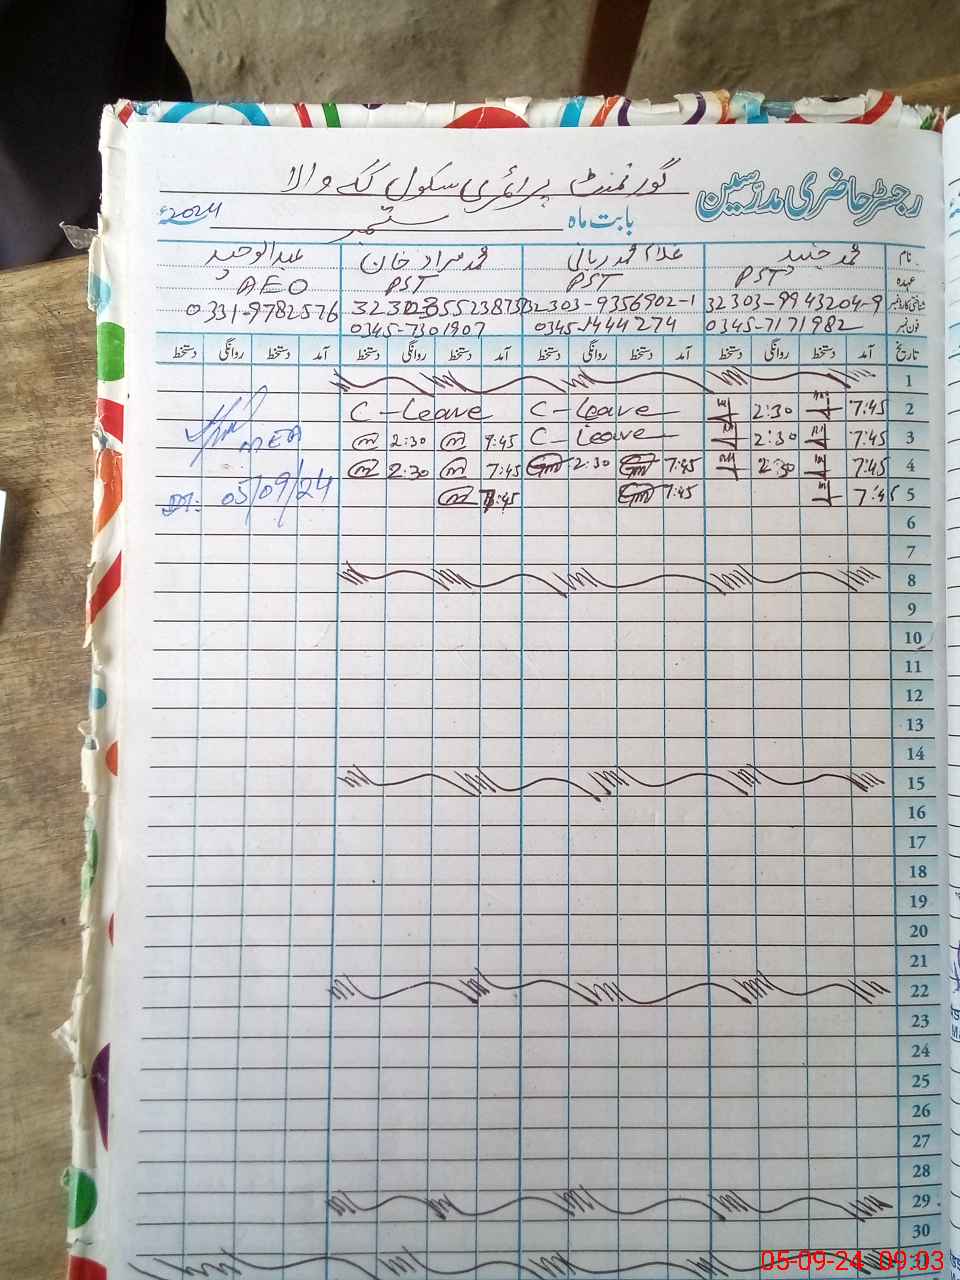 رجسٹر حاضری مدرسین گورنمنٹ پرائمری سکول ککے والا
بابت ماہ ستمبر 2024ء
نام محمد جنید غلام محمد ربانی محمد مراد خان عبدالوحید
عہدہ PST PST PST AEO
شناختی کارڈ نمبر 32303-9943204-9 32303-9356902-1 0331-9782576
فون نمبر 0345-7171982 0345-1444274 0345-7301907
تاریخ آمد دستخط روانگی دستخط آمد دستخط روانگی دستخط آمد دستخط روانگی دستخط آمد دستخط روانگی دستخط
1
2 7:45 2:30 C-Leave C-Leave
3 7:45 2:30 C-Leave 7:45 2:30 MEA
4 7:45 2:30 7:45 2:30 7:45 2:30
5 7:45 7:45 7:45 05/09/24
6
7
8
9
10
11
12
13
14
15
16
17
18
19
20
21
22
23
24
25
26
27
28
29
30
31
05-09-24 09:03